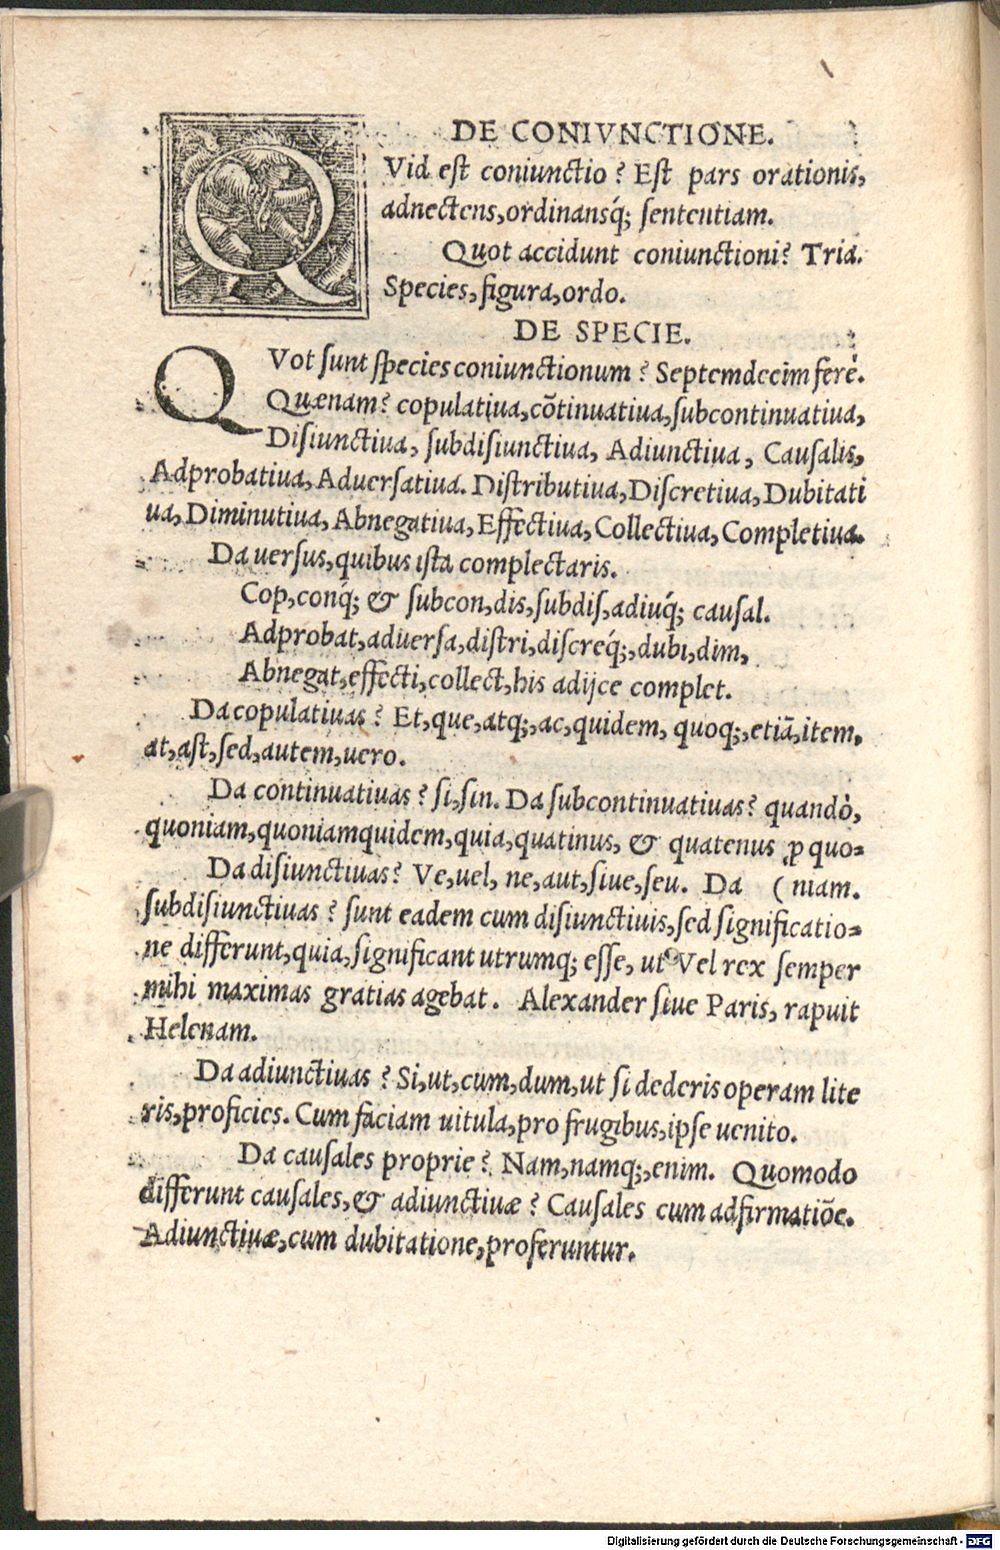 DE CONIVNCTIONE.
QVid est coniunctio? Est pars orationis,
adnectens, ordinansq́; sententiam.
Quot accidunt coniunctioni? Tria.
Species, figura, ordo.
DE SPECIE.
QVot sunt species coniunctionum? Septemdecim ferè.
Quænam? copulatiua, cõtinuatiua, subcontinuatiua,
Disiunctiua, subdisiunctiua, Adiunctiua, Causalis,
Adprobatiua, Aduersatiua. Distributiua, Discretiua, Dubitati
ua, Diminutiua, Abnegatiua, Effectiua, Collectiua, Completiua.
Da uersus, quibus ista complectaris.
Cop, conq́; & subcon, dis, subdis, adiuq́; causal.
Adprobat, aduersa, distri, discreq́;, dubi, dim,
Abnegat, effecti, collect, his adijce complet.
Da copulatiuas? Et, que, atq;, ac, quidem, quoq;, etiã, item,
at, ast, sed, autem, uero.
Da continuatiuas? si, sin. Da subcontinuatiuas? quandò,
quoniam, quoniamquidem, quia, quatinus, & quatenus ꝓ quo=
Da disiunctiuas? Ve, uel, ne, aut, siue, seu. Da (niam.
subdisiunctiuas? sunt eadem cum disiunctiuis, sed significatio=
ne differunt, quia, significant utrumq; esse, ut Vel rex semper
mihi maximas gratias agebat. Alexander siue Paris, rapuit
Helenam.
Da adiunctiuas? Si, ut, cum, dum, ut si dederis operam lite
ris, proficies. Cum faciam uitula, pro frugibus, ipse uenito.
Da causales proprie? Nam, namq;, enim. Quomodo
differunt causales, & adiunctiuæ? Causales cum adfirmatiõe.
Adiunctiuæ, cum dubitatione, proferuntur.
Digitalisierung gefördert durch die Deutsche Forschungsgemeinschaft - DFG